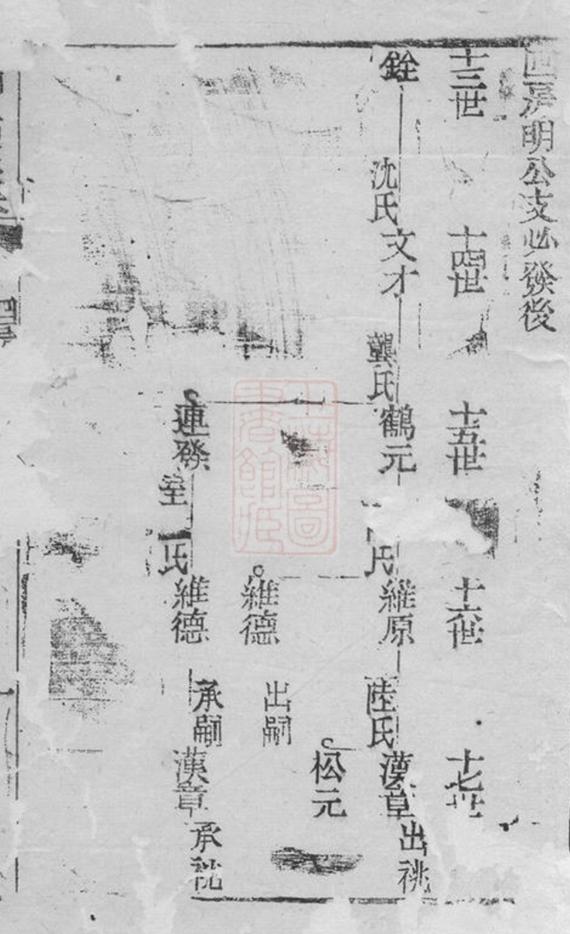 四房明公支必發後
十三世 十四世 十五世 十六世 十七世
銓 沈氏 文才 龔氏 鶴元 氏 維原 陸氏 漢章 出祧
松元
維德 出嗣
連發 室 氏 維德 承嗣 漢章 承祧